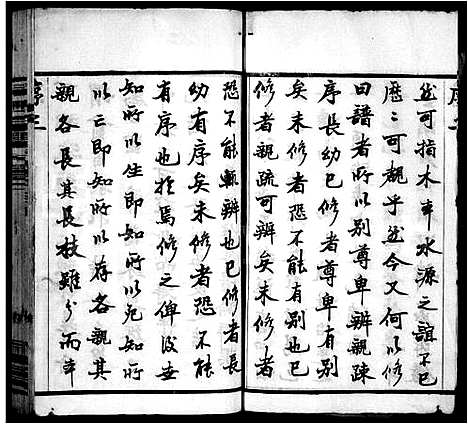 然可指木本水源之誼不已
歷歷可覩乎然今又何以修
曰譜者所以别尊卑辨親疎
序長幼已修者尊卑有别
矣未修者恐不能有别也已
修者親疏可辨矣未修者
恐不能輒辨也已修者長
幼有序矣未修者恐不能
有序也於焉修之俾後世
知所以生即知所以危知所
以亡即知所以存各親其
親各長其長枝雖分而本